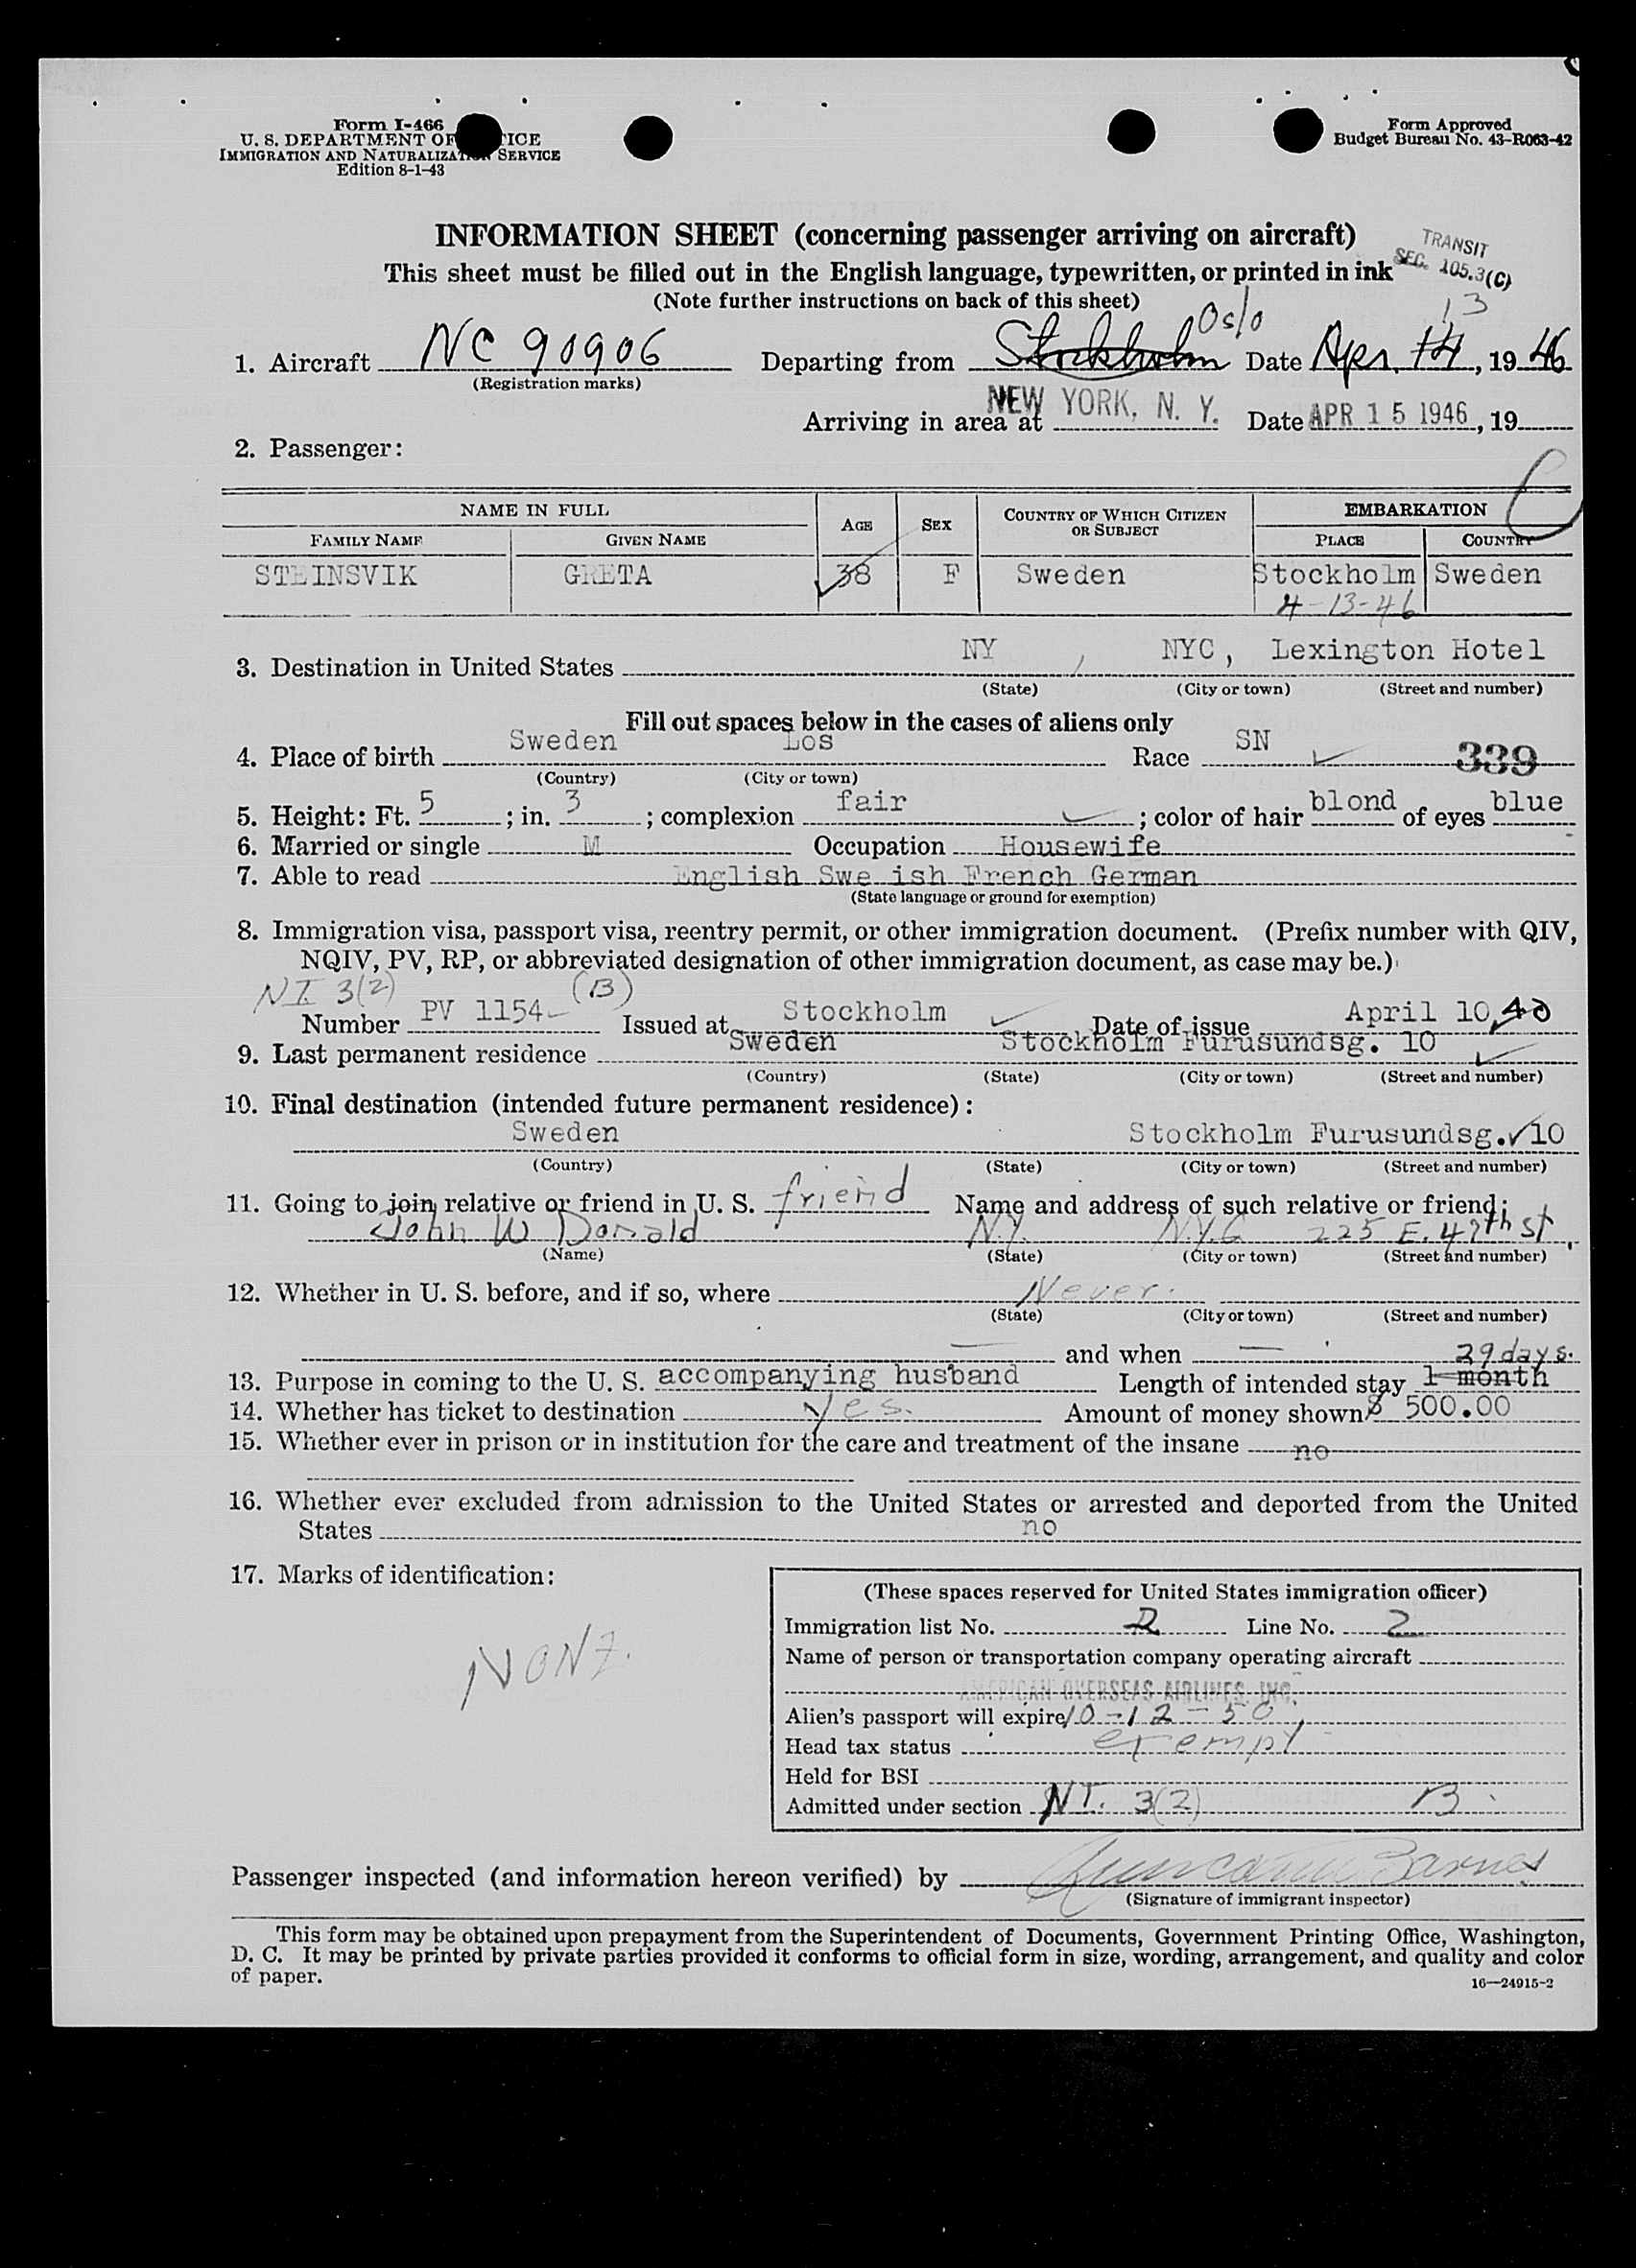 Form I-466
U. S. DEPARTMENT OF ICE
IMMIGRATION AND NATURALIZATION SERVICE
Edition 8-1-43
Form Approved
Budget Bureau No. 43-R063-42
INFORMATION SHEET (concerning passenger arriving on aircraft)
TRANSIT
SEC. 105.3(C)
This sheet must be filled out in the English language, typewritten, or printed in ink
(Note further instructions on back of this sheet)
Oslo 13
1. Aircraft NC 90906 Departing from Stockholm Date Apr. 14, 1946
(Registration marks)
Arriving in area at NEW YORK, N. Y. Date APR 15 1946, 19
2. Passenger:
NAME IN FULL AGE SEX COUNTRY OF WHICH CITIZEN OR SUBJECT EMBARKATION
FAMILY NAME GIVEN NAME PLACE COUNTRY
STEINSVIK GRETA 38 F Sweden Stockholm Sweden
4-13-46
3. Destination in United States NY, NYC, Lexington Hotel
(State) (City or town) (Street and number)
Fill out spaces below in the cases of aliens only
4. Place of birth Sweden Los Race SN 339
(Country) (City or town)
5. Height: Ft. 5; in. 3; complexion fair; color of hair blond of eyes blue
6. Married or single M Occupation Housewife
7. Able to read English Swe ish French German
(State language or ground for exemption)
8. Immigration visa, passport visa, reentry permit, or other immigration document. (Prefix number with QIV,
NQIV, PV, RP, or abbreviated designation of other immigration document, as case may be.)
NI 3(2) (B)
Number PV 1154 Issued at Stockholm Date of issue April 10,
9. Last permanent residence Sweden Stockholm Furusundsg. 10
(Country) (State) (City or town) (Street and number)
10. Final destination (intended future permanent residence):
Sweden Stockholm Furusundsg. 10
(Country) (State) (City or town) (Street and number)
11. Going to join relative or friend in U. S. friend Name and address of such relative or friend:
John W Donald N.Y. N.Y.C 225 E. 47th St.
(Name) (State) (City or town) (Street and number)
12. Whether in U. S. before, and if so, where Never.
(State) (City or town) (Street and number)
and when — 29 days.
13. Purpose in coming to the U. S. accompanying husband Length of intended stay 1 month
14. Whether has ticket to destination Yes. Amount of money shown $ 500.00
15. Whether ever in prison or in institution for the care and treatment of the insane no
16. Whether ever excluded from admission to the United States or arrested and deported from the United
States no
17. Marks of identification:
NONE.
(These spaces reserved for United States immigration officer)
Immigration list No. 2 Line No. 2
Name of person or transportation company operating aircraft
AMERICAN OVERSEAS AIRLINES, INC.
Alien's passport will expire 10-12-50
Head tax status exempt
Held for BSI
Admitted under section NI. 3(2) B.
Passenger inspected (and information hereon verified) by Barnes
(Signature of immigrant inspector)
This form may be obtained upon prepayment from the Superintendent of Documents, Government Printing Office, Washington,
D. C. It may be printed by private parties provided it conforms to official form in size, wording, arrangement, and quality and color
of paper.
16—24915-2